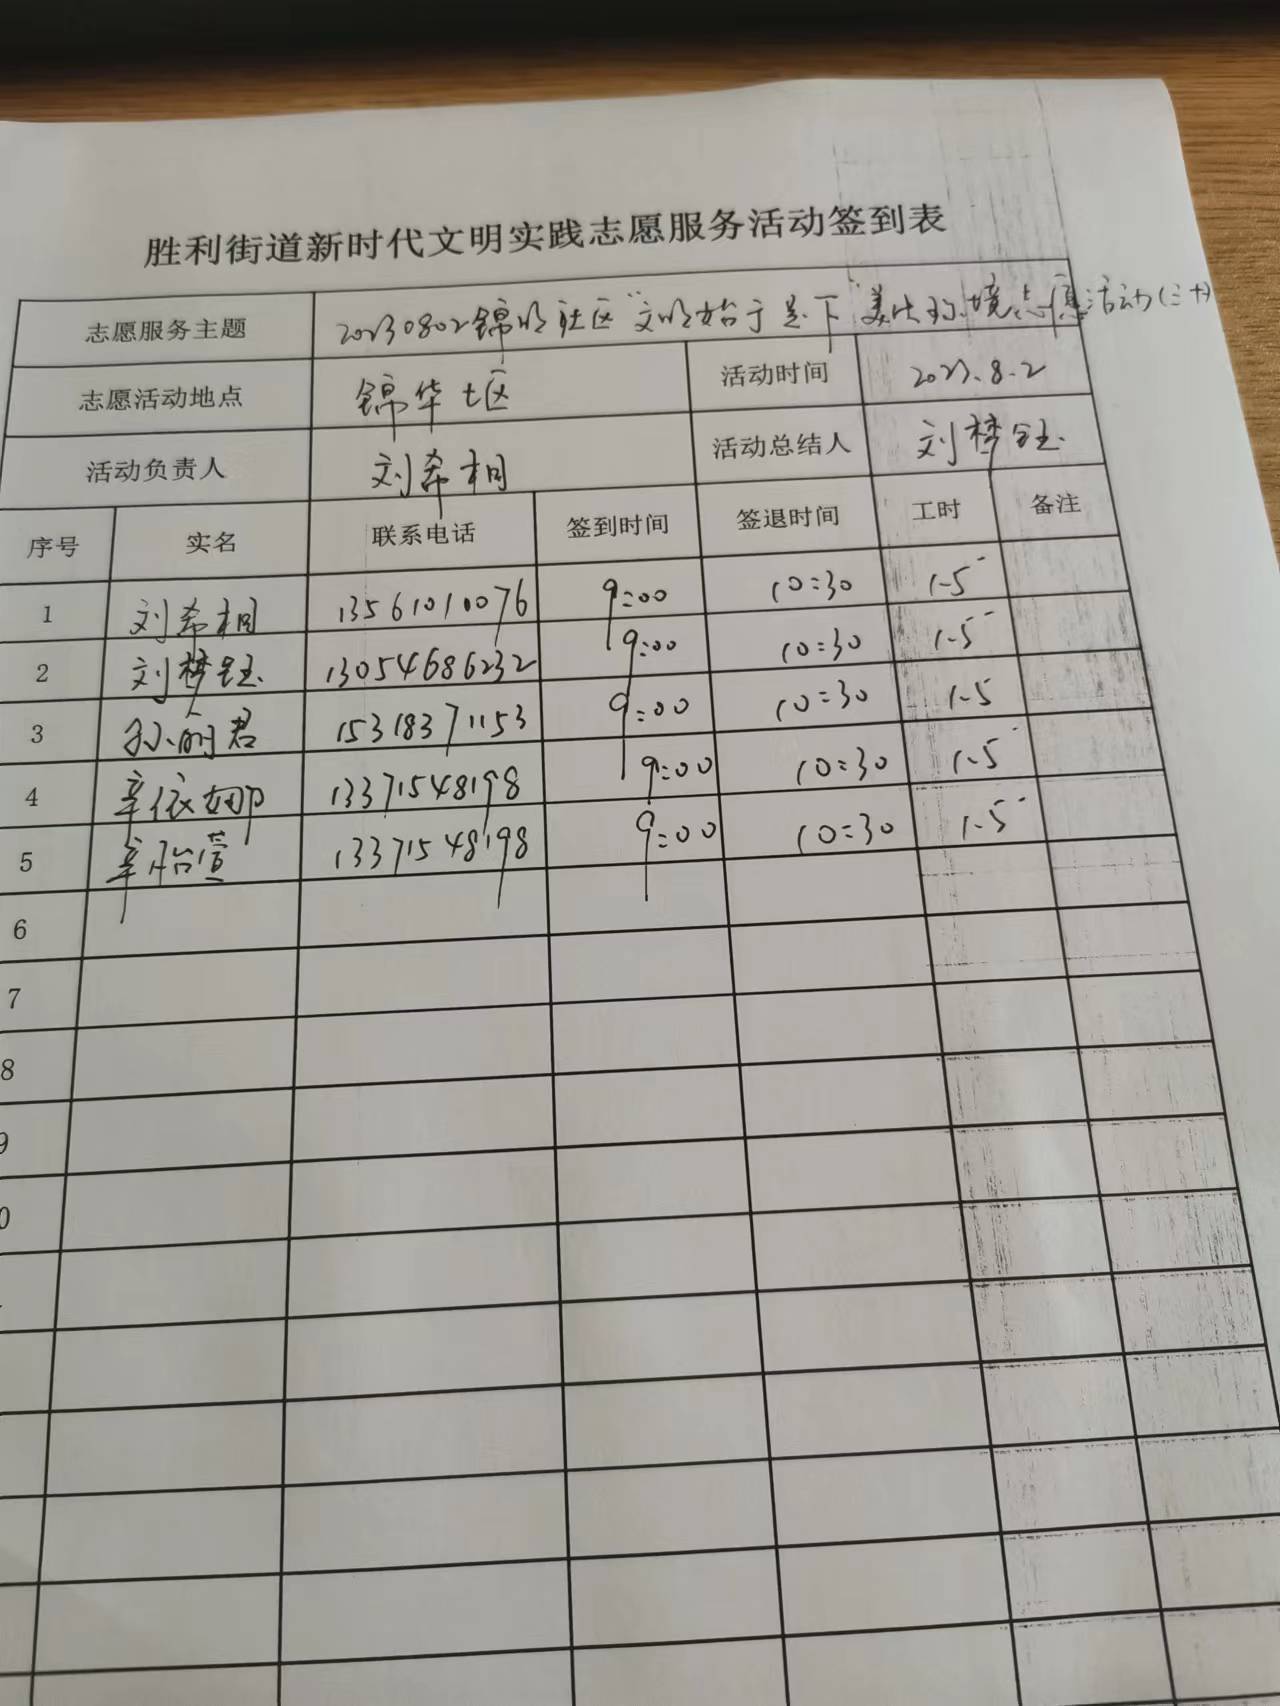 胜利街道新时代文明实践志愿服务活动签到表
志愿服务主题 20230802锦华社区"文明始于足下"美化环境志愿活动(三十)
志愿活动地点 锦华社区 活动时间 2023.8.2
活动负责人 刘希相 活动总结人 刘梦钰
序号 实名 联系电话 签到时间 签退时间 工时 备注
1 刘希相 13561010076 9:00 10:30 1.5
2 刘梦钰 13054686232 9:00 10:30 1.5
3 孙丽君 15318371153 9:00 10:30 1.5
4 辛依娜 13371548198 9:00 10:30 1.5
5 辛怡萱 13371548198 9:00 10:30 1.5
6
7
8
9
0